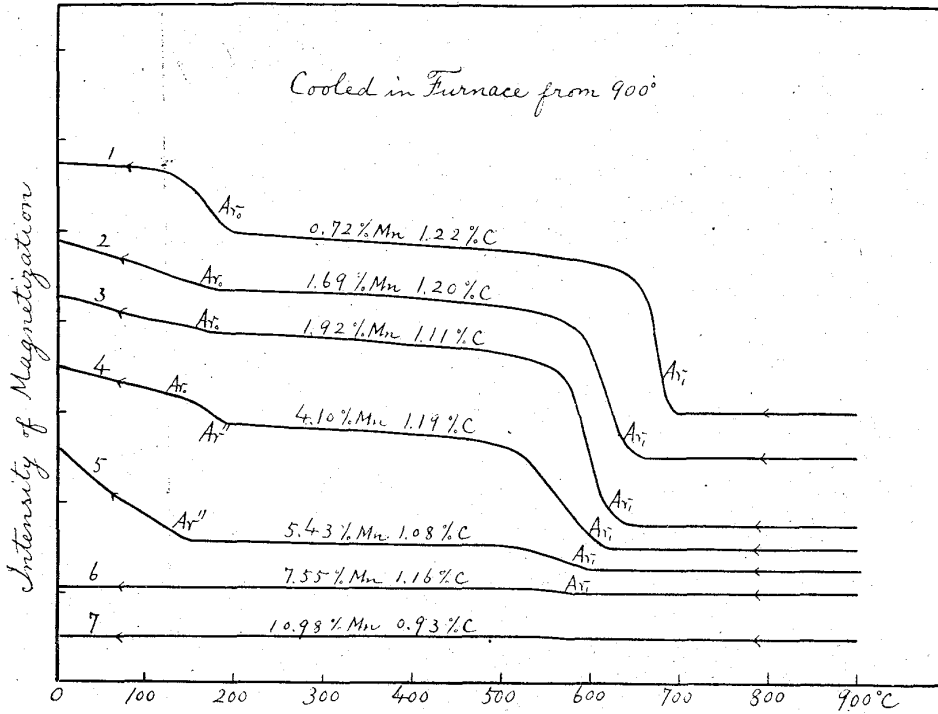 Cooled in Furnace from 900°
Intensity of Magnetization
1
Ar₀
0.72%Mn 1.22%C
2
Ar₀
1.69%Mn 1.20%C
3
Ar₀
1.92%Mn 1.11%C
Ar₁
4
Ar₀
Ar"
4.10%Mn 1.19%C
Ar₁
5
Ar"
5.43%Mn 1.08%C
Ar₁
Ar₁
Ar₁
6
7.55%Mn 1.16%C
Ar₁
7
10.98%Mn 0.93%C
0 100 200 300 400 500 600 700 800 900°C